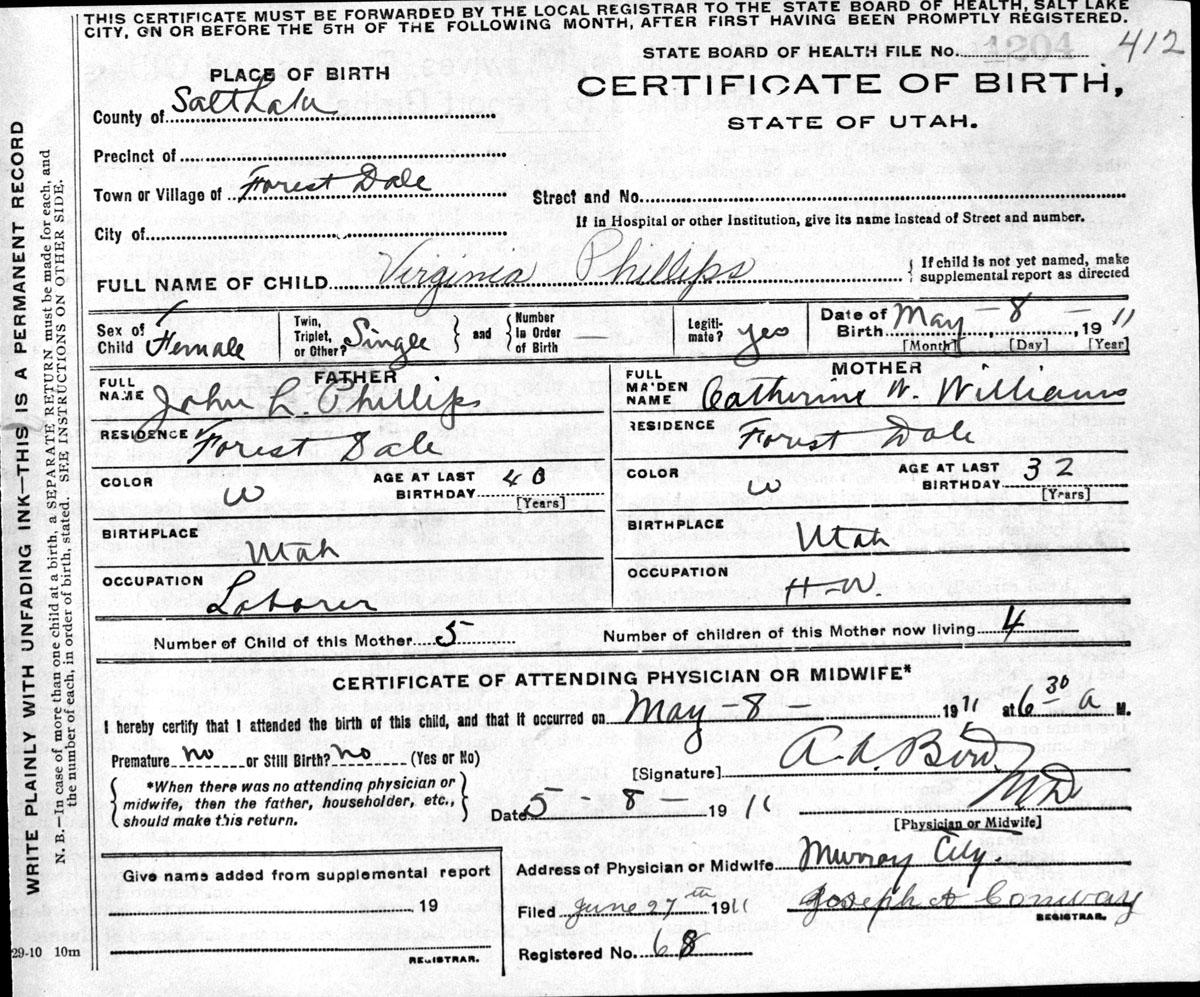 THIS CERTIFICATE MUST BE FORWARDED BY THE LOCAL REGISTRAR TO THE STATE BOARD OF HEALTH, SALT LAKE
CITY, ON OR BEFORE THE 5TH OF THE FOLLOWING MONTH, AFTER FIRST HAVING BEEN PROMPTLY REGISTERED.
412
STATE BOARD OF HEALTH FILE No. 1204
PLACE OF BIRTH
CERTIFICATE OF BIRTH,
STATE OF UTAH.
County of Salt Lake
Precinct of
Town or Village of Forest Dale
Street and No.
If in Hospital or other Institution, give its name instead of Street and number.
City of
FULL NAME OF CHILD Virginia Phillips
If child is not yet named, make
supplemental report as directed
Sex of Child Female
Twin, Triplet, or Other? Single
and
Number In Order of Birth —
Legitimate? yes
Date of Birth May - 8 -, 1911
[Month] [Day] [Year]
FATHER
FULL NAME John L. Phillips
RESIDENCE Forest Dale
COLOR W
AGE AT LAST BIRTHDAY 40
[Years]
BIRTHPLACE Utah
OCCUPATION Laborer
MOTHER
FULL MAIDEN NAME Catherine W. Williams
RESIDENCE Forest Dale
COLOR W
AGE AT LAST BIRTHDAY 32
[Years]
BIRTHPLACE Utah
OCCUPATION H-W.
Number of Child of this Mother 5
Number of children of this Mother now living 4
CERTIFICATE OF ATTENDING PHYSICIAN OR MIDWIFE*
I hereby certify that I attended the birth of this child, and that it occurred on May - 8 1911 at 6 30 a M.
Premature no or Still Birth? no (Yes or No)
[Signature] A. A. Bird
*When there was no attending physician or
midwife, then the father, householder, etc.,
should make this return.
Date 5 - 8 - 1911
MD
[Physician or Midwife]
Give name added from supplemental report
19
REGISTRAR.
Address of Physician or Midwife Murray City.
Filed June 27th 1911
Joseph A Conway
REGISTRAR.
Registered No. 68
29-10 10m
WRITE PLAINLY WITH UNFADING INK—THIS IS A PERMANENT RECORD
N. B.—In case of more than one child at a birth, a SEPARATE RETURN must be made for each, and
the number of each, in order of birth, stated. SEE INSTRUCTIONS ON OTHER SIDE.